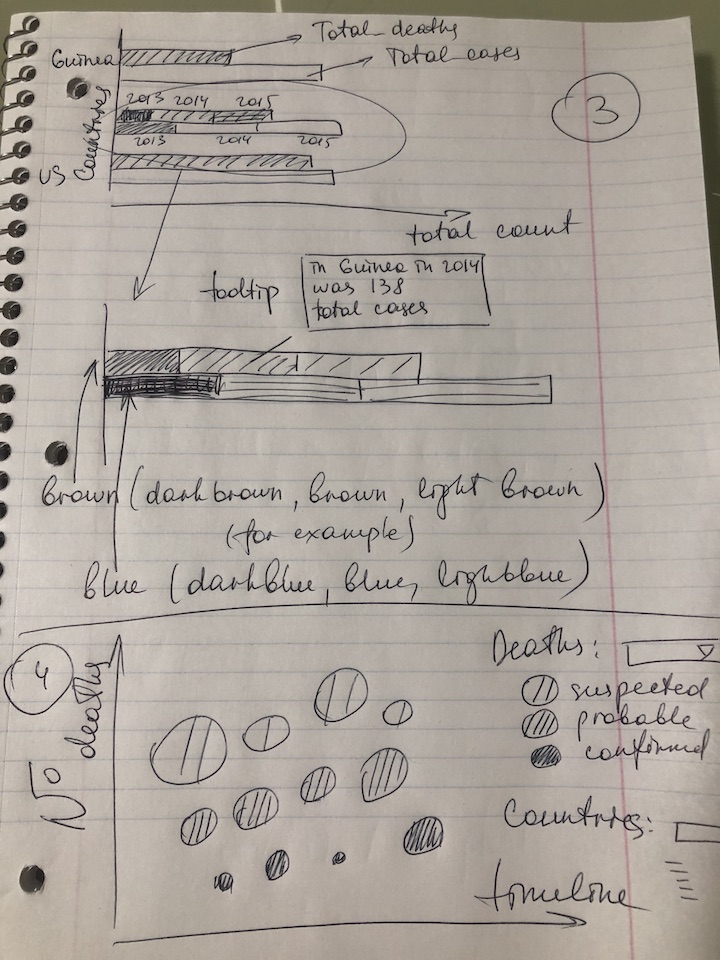 Total_deaths
Guinea
Total_cases
3
2013 2014 2015
2013 2014 2015
Countries
US
total count
tooltip
in Guinea in 2014
was 138
total cases
brown (dark brown, brown, light brown)
(for example)
blue (darkblue, blue, lightblue)
4
No deaths
Deaths:
suspected
probable
confirmed
Countries:
timeline